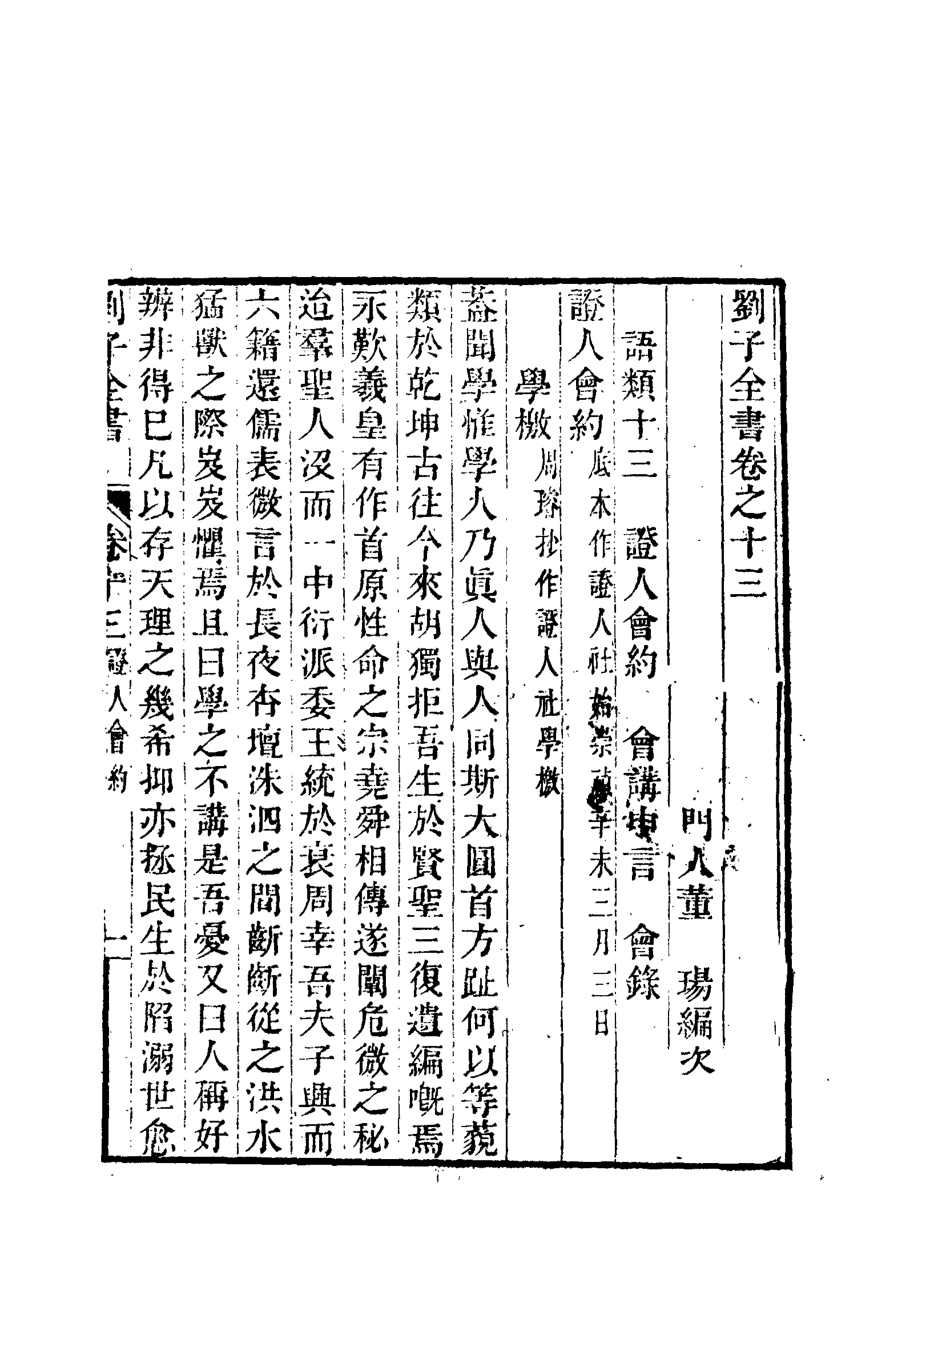 劉子全書卷之十三
門人董　瑒編次
語類十三　證人會約　會講申言　會錄
證人會約底本作證人社始崇禎辛未三月三日
學檄周璿抄作證人社學檄
蓋聞學惟學人乃眞人與人同斯大圓首方趾何以等藐
類於乾坤古往今來胡獨拒吾生於賢聖三復遺編嘅焉
永歎羲皇有作首原性命之宗堯舜相傳遂闡危微之秘
迨羣聖人沒而一中衍派委王統於衰周幸吾夫子興而
六籍還儒表微言於長夜杏壇洙泗之間齗齗從之洪水
猛獸之際岌岌懼焉且曰學之不講是吾憂又曰人稱好
辨非得已凡以存天理之幾希抑亦拯民生於陷溺世愈
劉子全書　卷十三證人會約　一